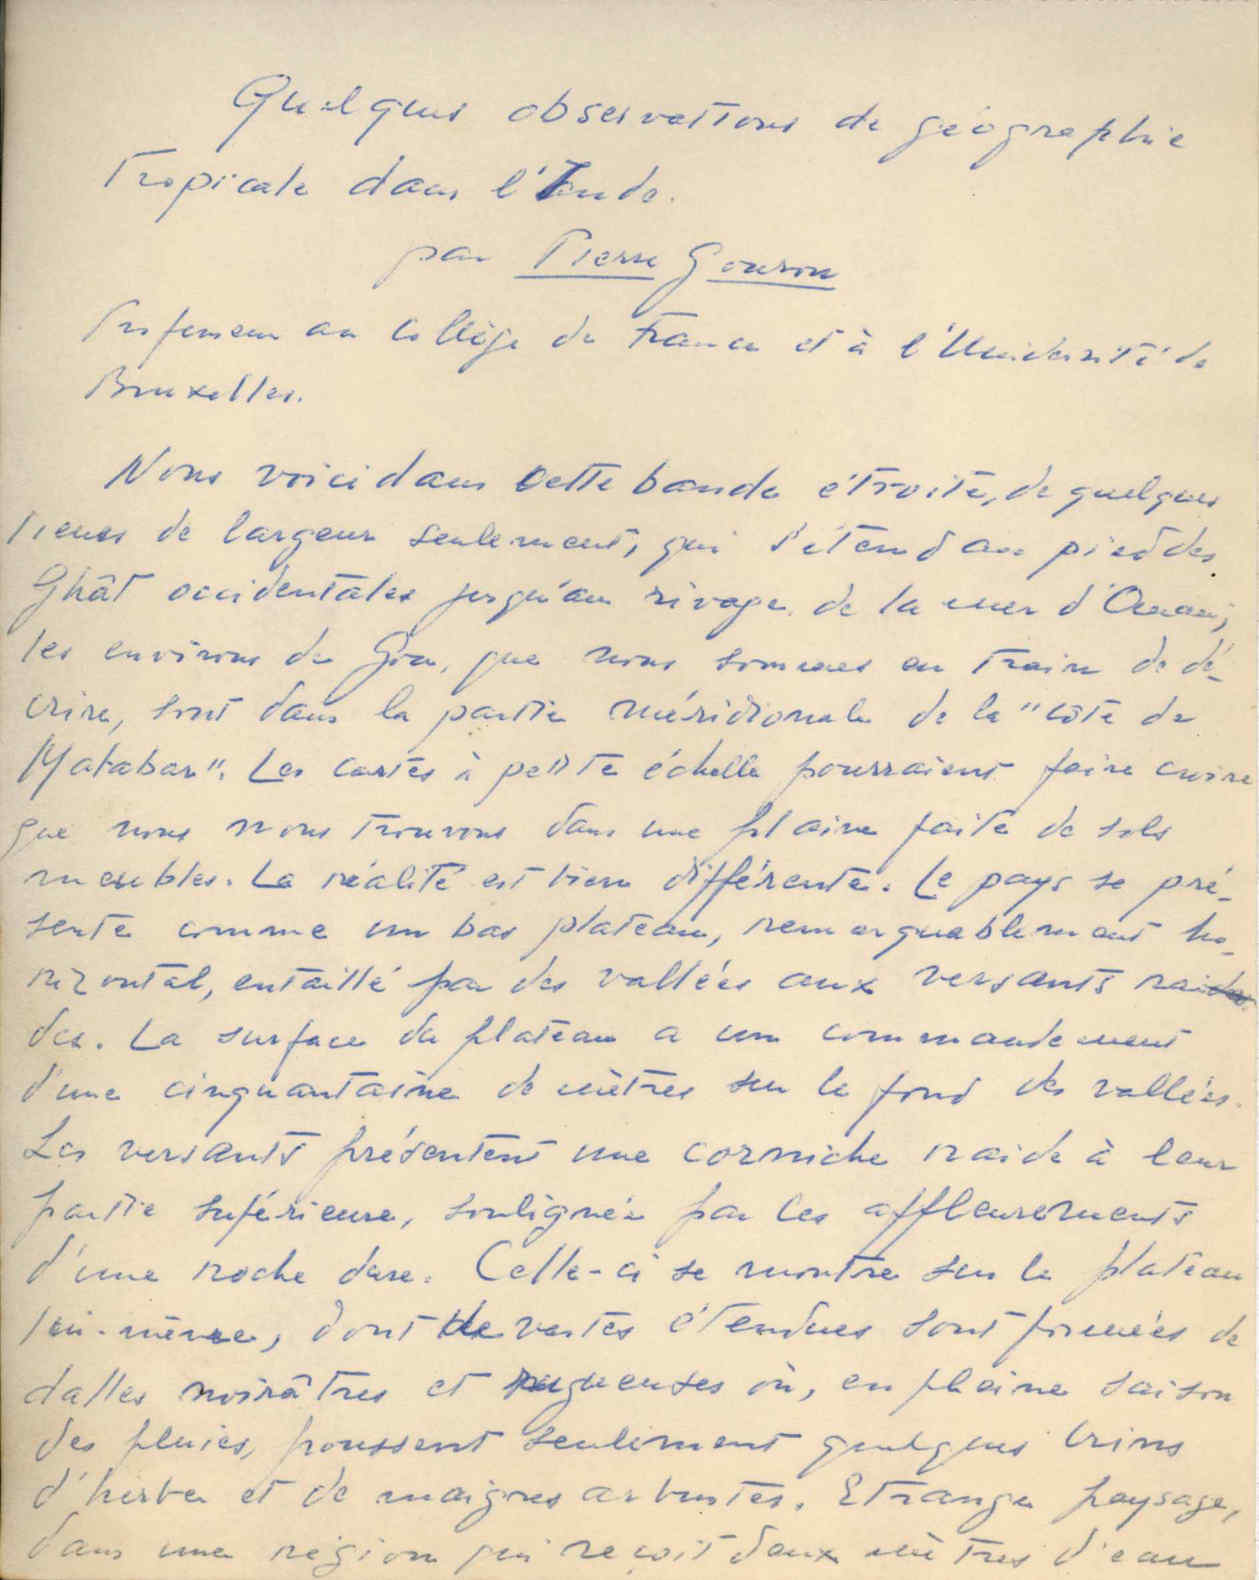 Quelques observations de géographie
Tropicale dans l'Inde.
par Pierre Gourou
Professeur au Collège de France et à l'Université de
Bruxelles.
Nous voici dans cette bande étroite, de quelques
lieues de largeur seulement, qui s'étend au pied des
Ghât occidentales jusqu'au rivage de la mer d'Oman;
les environs de Goa, que nous sommes en train de dé-
crire, sont dans la partie méridionale de la "côte de
Malabar". Les cartes à petite échelle pourraient faire croire
que nous nous trouvons dans une plaine faite de sols
meubles. La réalité est bien différente. Le pays se pré-
sente comme un bas plateau, remarquablement ho-
rizontal, entaillé par des vallées aux versants rai
des. La surface du plateau a un commandement
d'une cinquantaine de mètres sur le fond des vallées.
Les versants présentent une corniche raide à leur
partie supérieure, soulignée par les affleurements
d'une roche dure. Celle-ci se montre sur le plateau
lui-même, dont de vastes étendues sont formées de
dalles noirâtres et rugueuses où, en pleine saison
des pluies, poussent seulement quelques brins
d'herbe et de maigres arbustes. Etrange paysage,
dans une région qui reçoit deux mètres d'eau